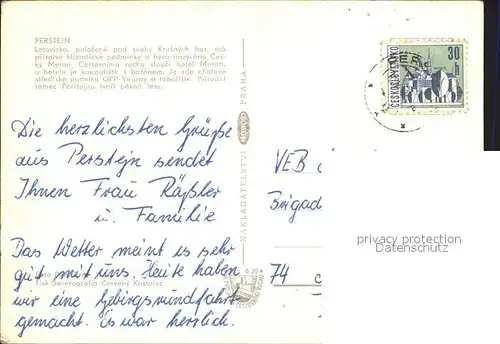 PERŠTEJN
Letovisko, položené pod svahy Krušných hor, má
příznivé klimatické podmínky a bývá nazýváno Čes-
ký Meran. Cestovnímu ruchu slouží hotel Meran,
u hotelu je koupaliště s bazénem. Je zde chatové
středisko podniku OPP Vejprty a tábořiště. Přírodní
rámec Perštejna tvoří pěkné lesy.
Die herzlichsten Grüße
aus Perstejn sendet
Ihnen Frau Räßler
u. Familie
Das Wetter meint es sehr
gut mit uns. Heute haben
wir eine Gebirgsrundfahrt
gemacht. Es war herrlich.
Foto
Tisk Severografia Červený Kostelec
0,20
NAKLADATELSTVÍ
PRAHA
ČESKOSLOVENSKO
30
h
VEB
Brigad
74
privacy protection
Datenschutz